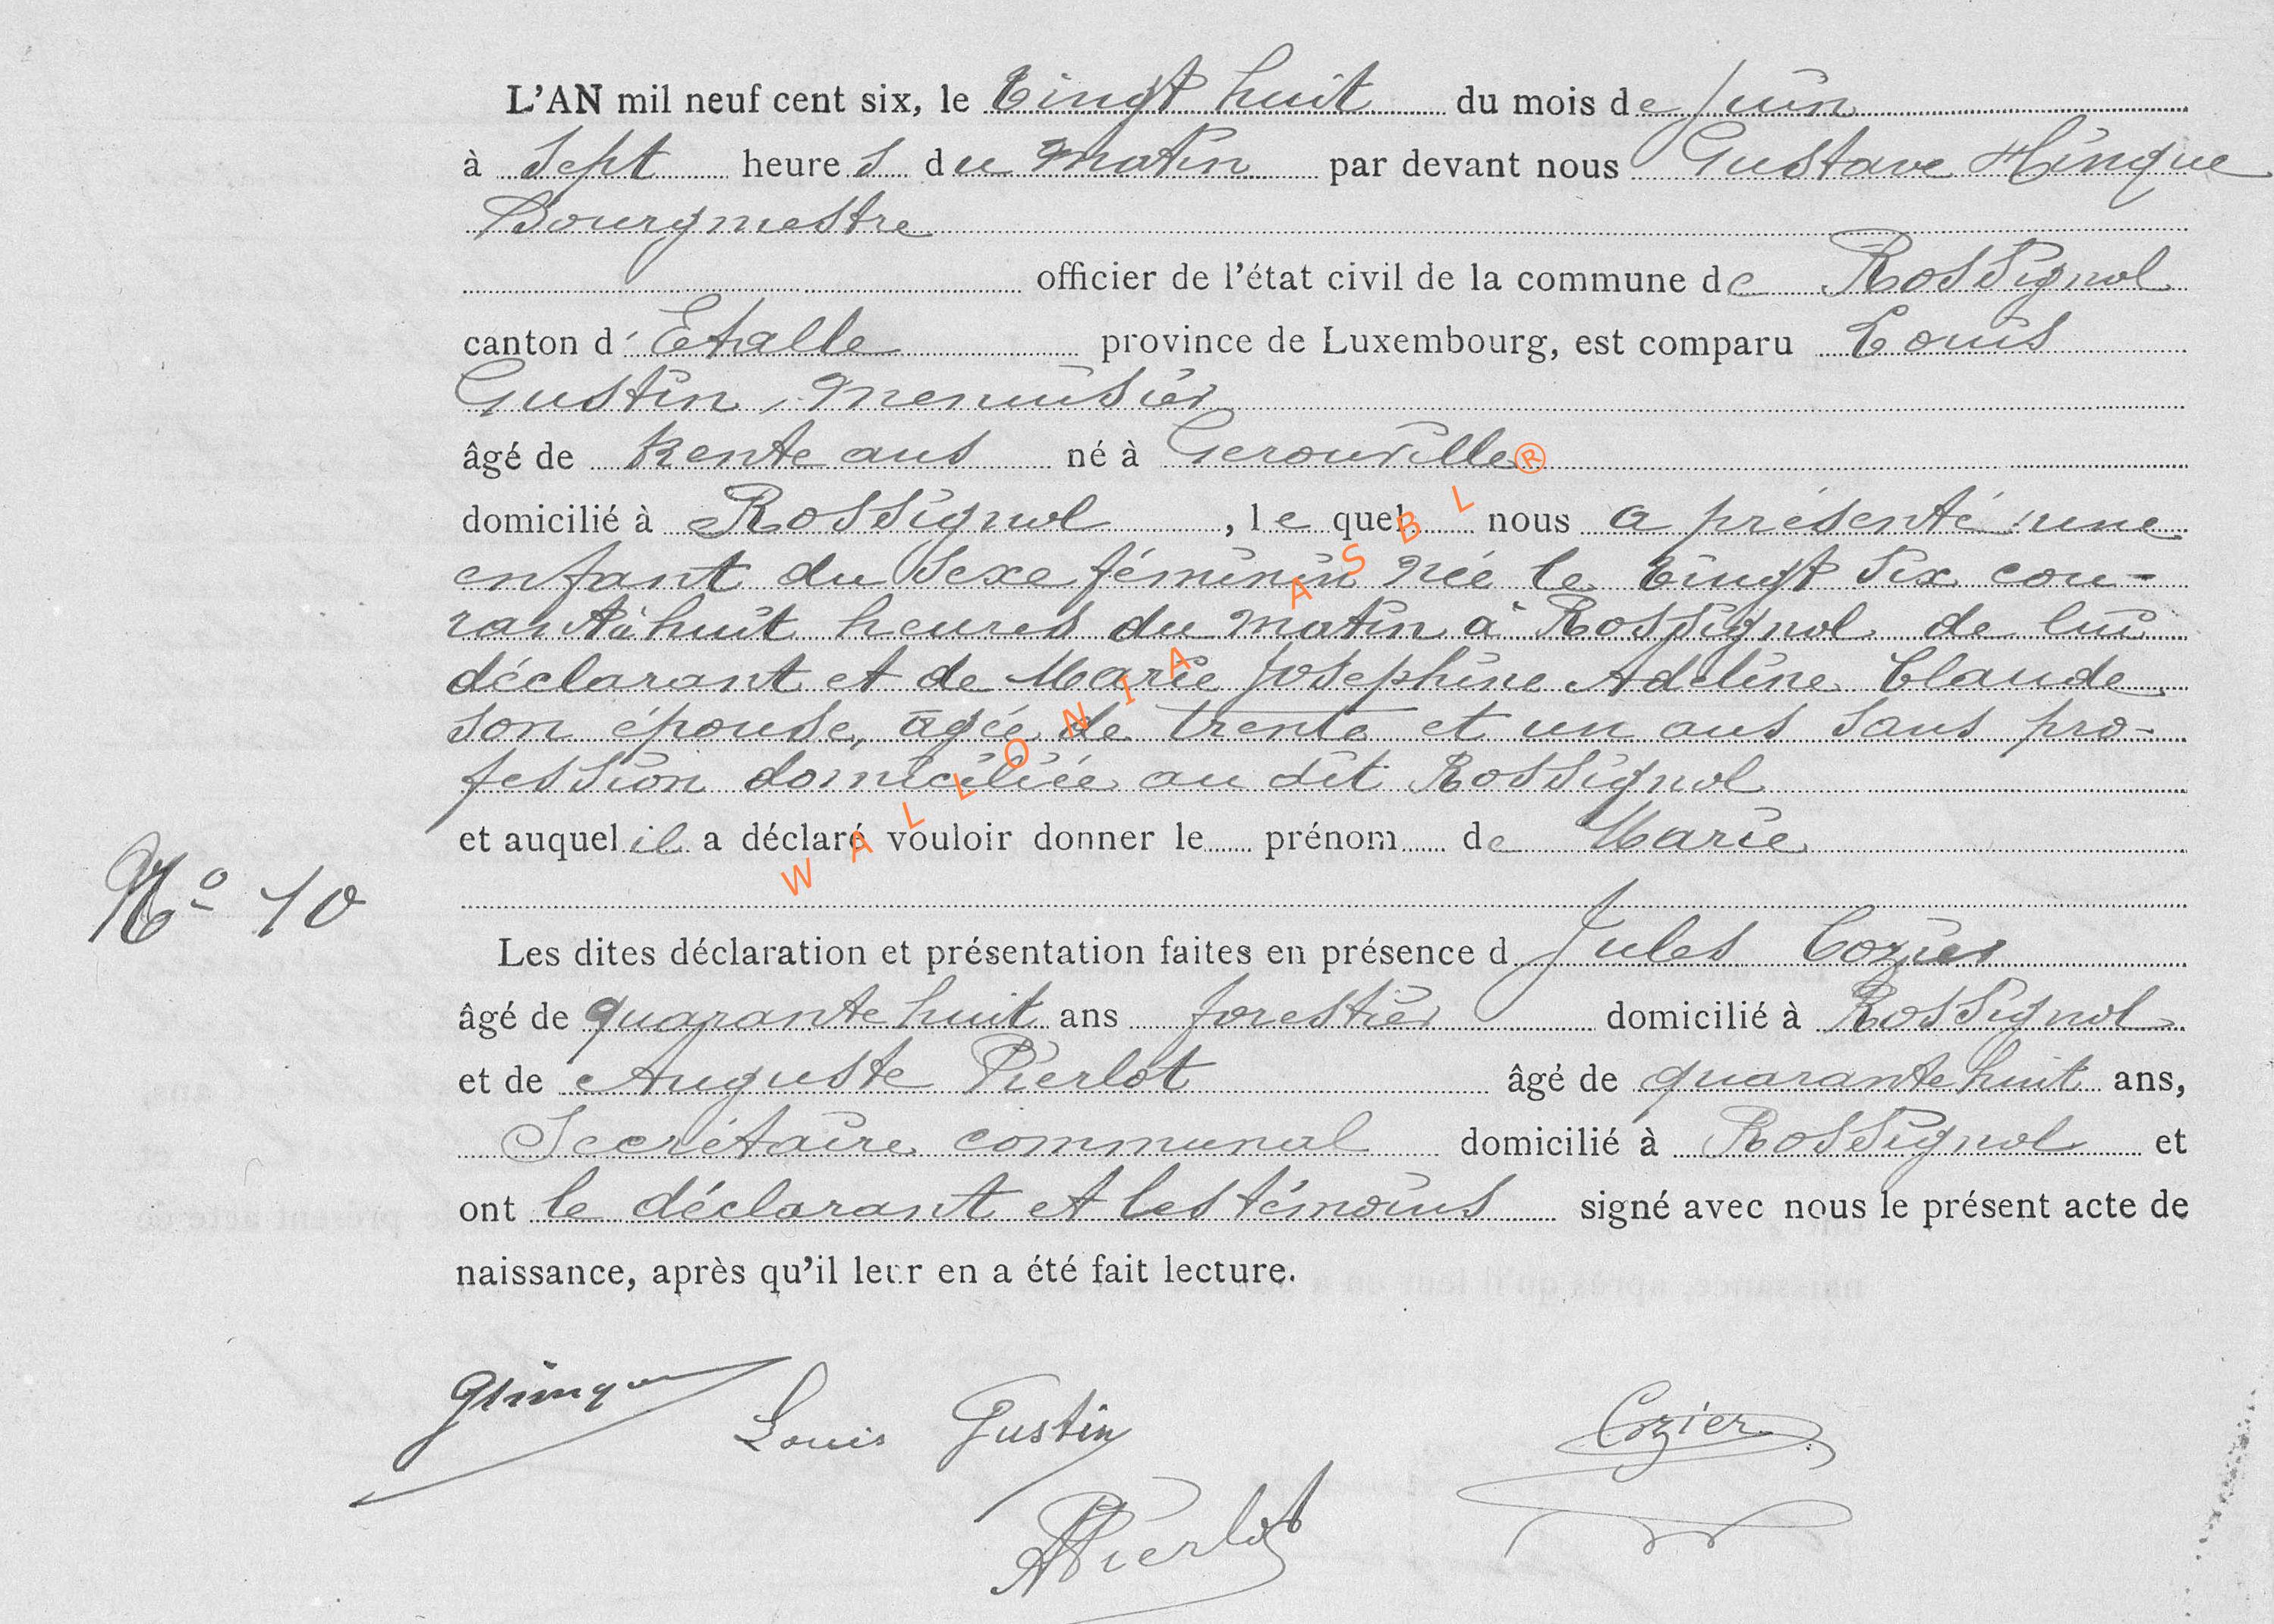 L'AN mil neuf cent six, le vingt huit du mois de juin
à sept heures du matin par devant nous Gustave Hinque
Bourgmestre
officier de l'état civil de la commune de Rossignol
canton d'Etalle province de Luxembourg, est comparu Louis
Gustin, menuisier
âgé de trente ans né à Gerouville
domicilié à Rossignol, lequel nous a présenté une
enfant du sexe féminin née le vingt six cou-
rant à huit heures du matin à Rossignol de lui
déclarant et de Marie Josephine Adeline Claude
son épouse, âgée de trente et un ans sans pro-
fession domiciliée au dit Rossignol
et auquel il a déclaré vouloir donner le prénom de Marie
N° 10
Les dites déclaration et présentation faites en présence d Jules Cozier
âgé de quarante huit ans forestier domicilié à Rossignol
et de Auguste Pierlot âgé de quarante huit ans,
Secrétaire communal domicilié à Rossignol et
ont le déclarant et les témoins signé avec nous le présent acte de
naissance, après qu'il leur en a été fait lecture.
GHinque
Louis Gustin
Cozier
APierlot
WALLONIA ASBL ®